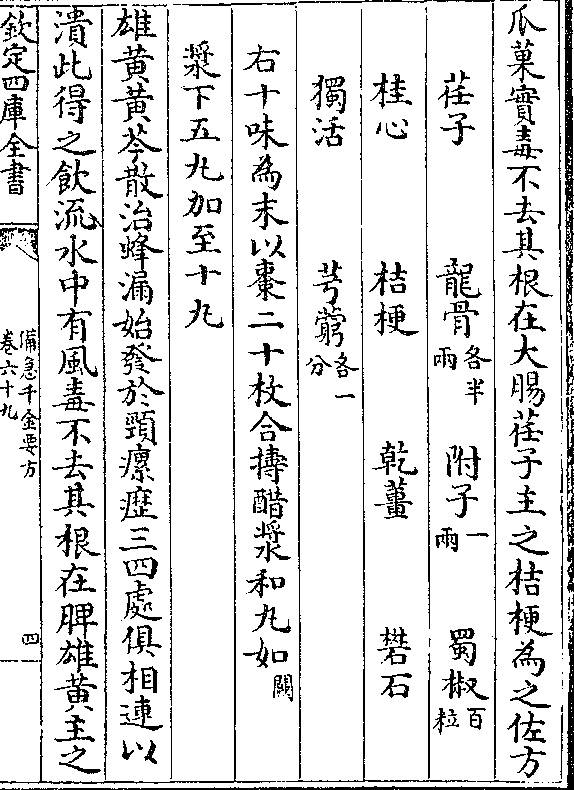 瓜菓實毒不去其根在大腸荏子主之桔梗為之佐方
荏子 龍骨各半兩 附子一兩 蜀椒百粒
桂心 桔梗 乾薑 礬石
獨活 芎藭各一分
右十味為末以棗二十枚合擣醋漿和丸如闕
漿下五丸加至十丸
雄黃黃芩散治蜂漏始發於頸瘰癧三四處俱相連以
潰此得之飲流水中有風毒不去其根在脾雄黃主之
欽定四庫全書
備急千金要方
卷六十九
四